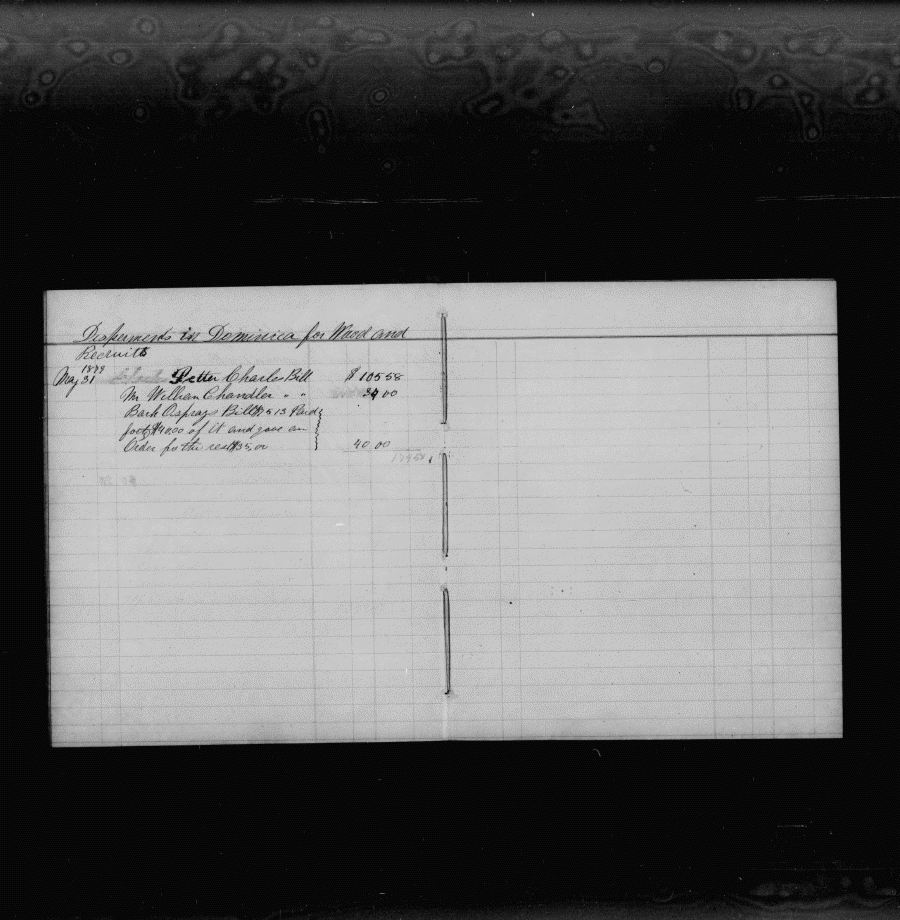 Disperments in Dominica for Wood and
Recruits
1879
May 31 Petter Charles Bill $ 105 58
Mr William Chandler " " 34 00
Bark Osprays Bill 13 Paid
$40.00 of it and gave an
Order for the rest $35,00 40 00
179 58